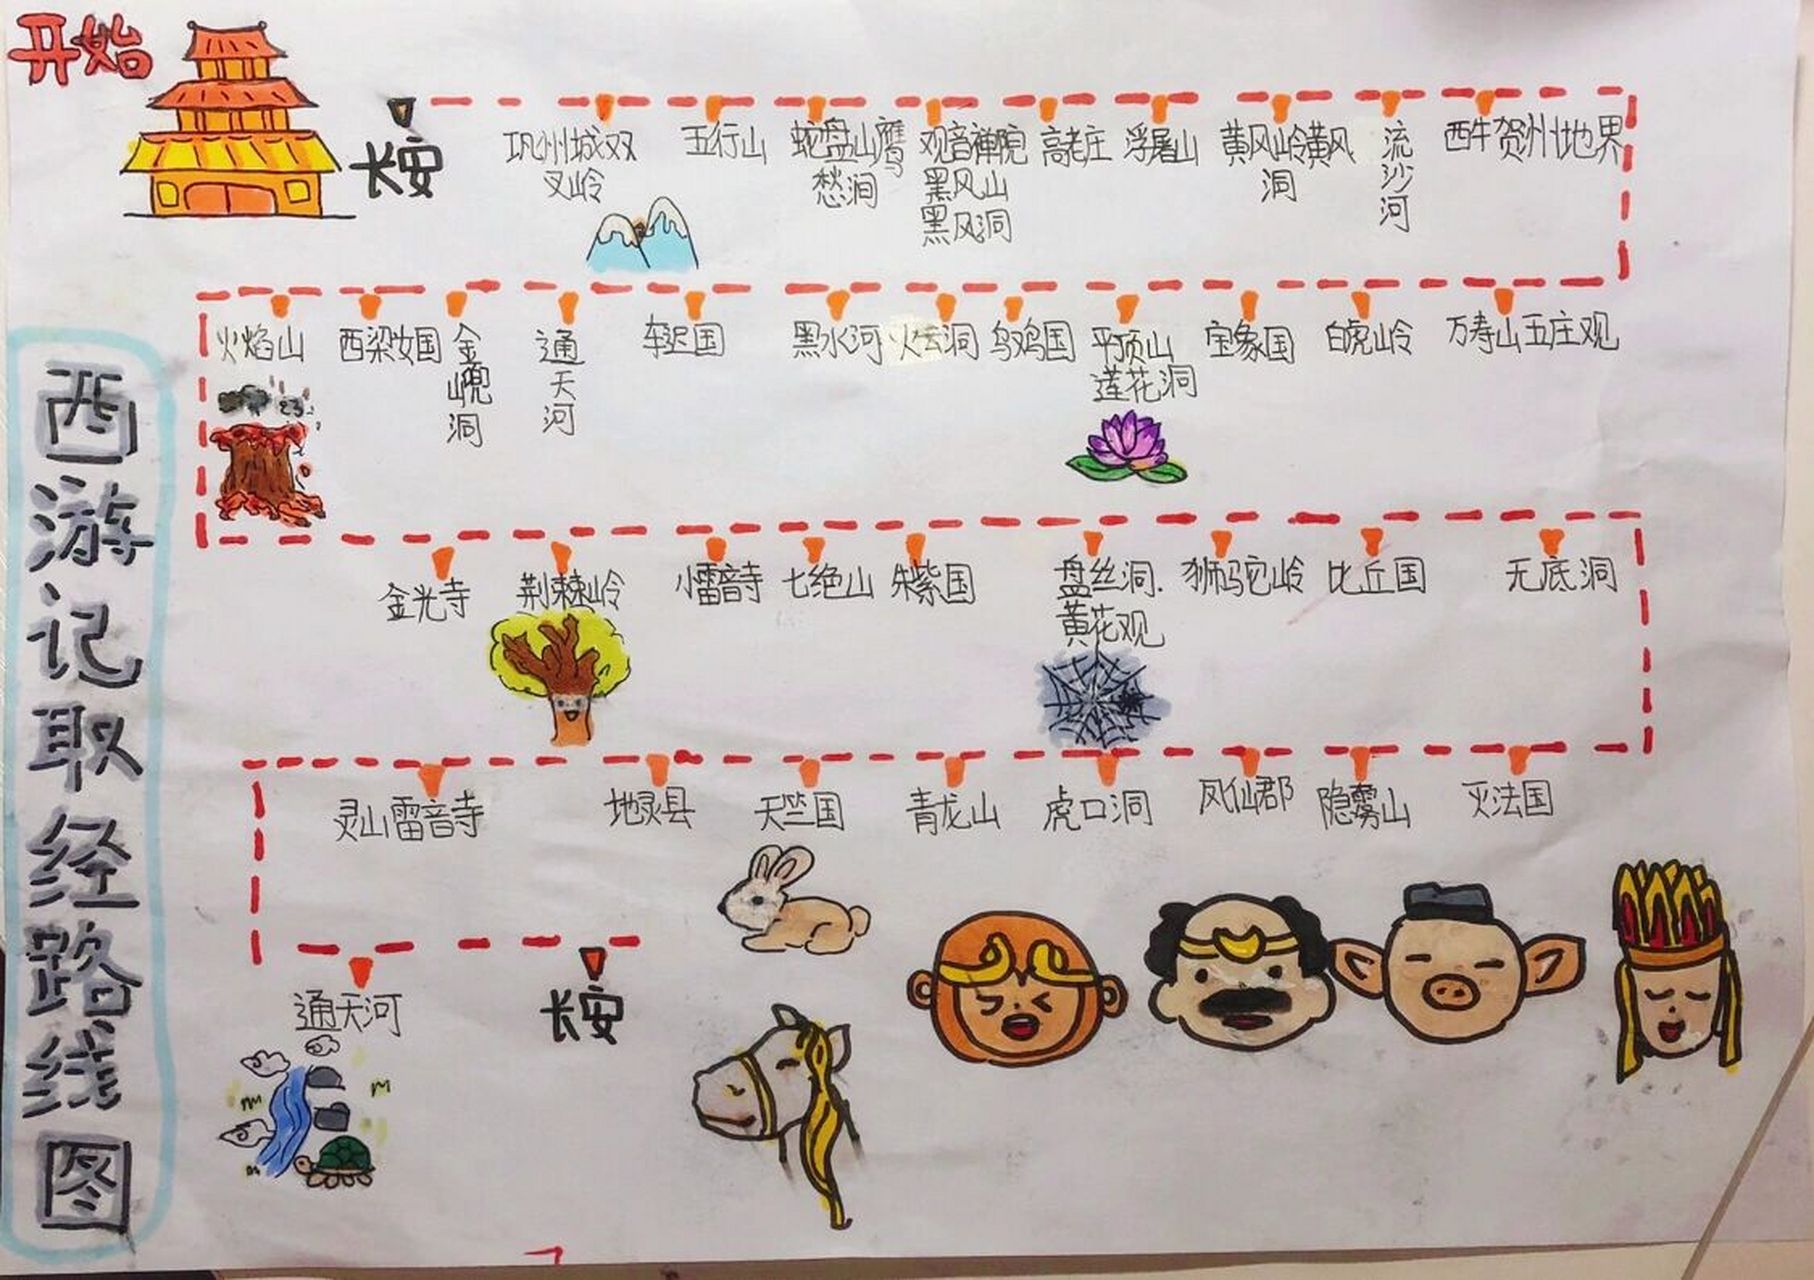 开始
长安
巩州城双
叉岭
五行山
蛇盘山鹰
愁涧
观音禅院
黑风山
黑风洞
高老庄
浮屠山
黄风岭黄风
洞
流沙河
西牛贺州地界
火焰山
西梁女国
金𡷗洞
通天河
车迟国
黑水河
火云洞
乌鸡国
平顶山
莲花洞
宝象国
白虎岭
万寿山五庄观
金光寺
荆棘岭
小雷音寺
七绝山
朱紫国
盘丝洞.
黄花观
狮驼岭
比丘国
无底洞
灵山雷音寺
地灵县
天竺国
青龙山
虎口洞
凤仙郡
隐雾山
灭法国
通天河
长安
西游记取经路线图